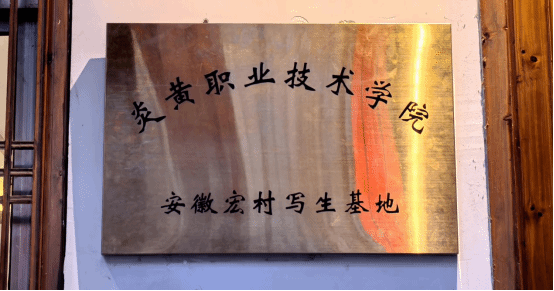 炎黄职业技术学院
安徽宏村写生基地